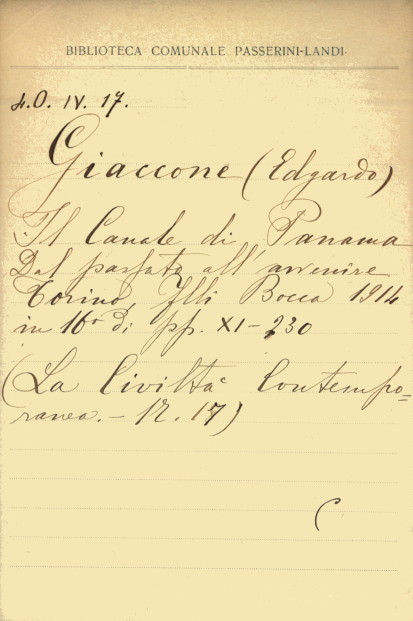 BIBLIOTECA COMUNALE PASSERINI-LANDI
4.O. IV. 17.
Giaccone (Edgardo)
Il Canale di Panama
Dal passato all'avvenire
Torino, Flli Bocca 1914
in 16º di pp. XI-230
(La Civiltà Contempo=
ranea. - N. 17)
C